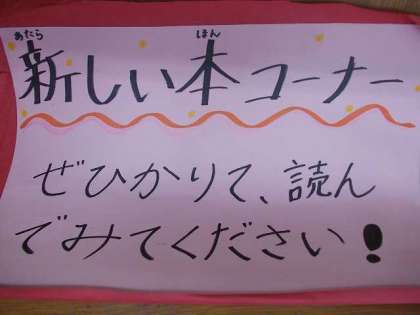 あたら ほん
新しい本コーナー
ぜひかりて、読ん
でみてください!